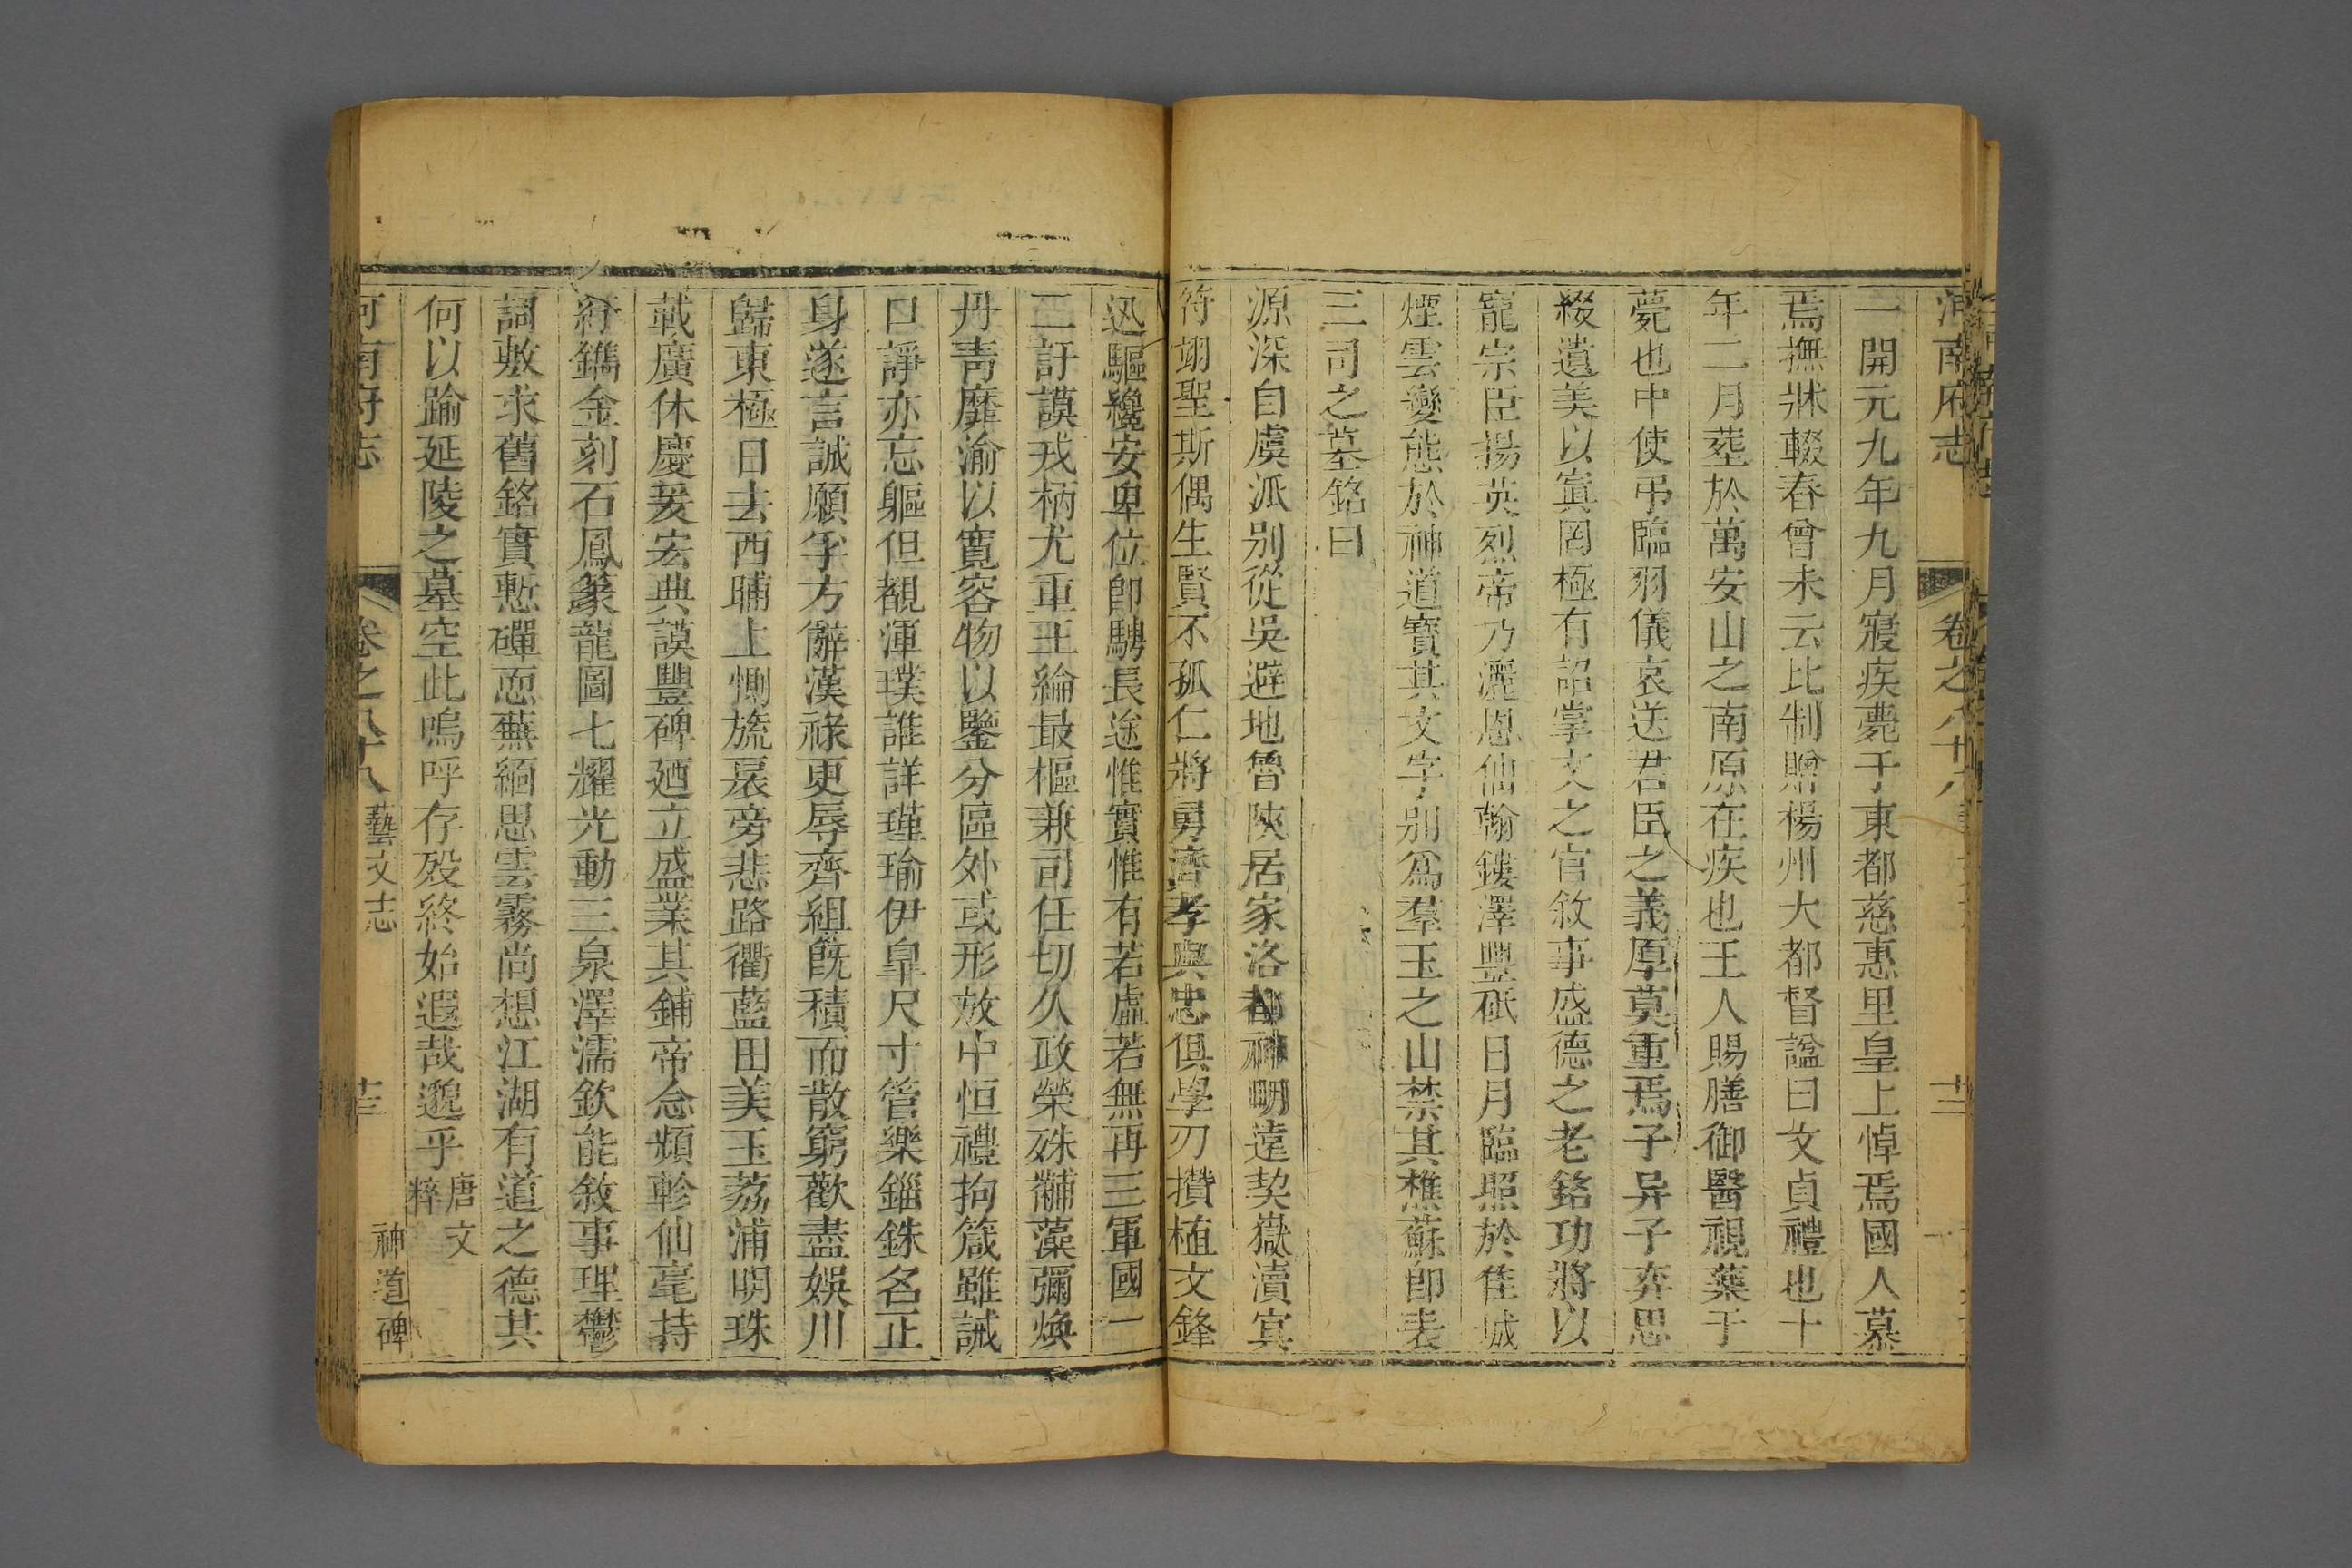 河南府志 卷之八十八 十三
一開元九年九月寢疾薨于東都慈惠里皇上悼焉國人慕
焉撫牀輟舂曾未云比制贈楊州大都督諡曰文貞禮也十
年二月葬於萬安山之南原在疾也王人賜膳御醫視藥于
薨也中使弔臨羽儀哀送君臣之義厚莫重焉子异子弈思
綴遺美以寘罔極有詔掌文之官敘事盛德之老銘功將以
寵宗臣揚英烈帝乃灑恩仙翰鏤澤豐砥日月臨照於隹城
煙雲變態於神道寳其文字别爲羣玉之山禁其樵蘇即表
三司之墓銘曰
源深自虞派别從吳避地魯陝居家洛都神明遠契嶽瀆寘
符翊聖斯偶生賢不孤仁將勇濟孝與忠俱學刃攅植文鋒
迅驅纔安卑位卽騁長途惟實惟有若虛若無再三軍國一
二訏謨戎柄尤重王綸最樞兼司任切久政榮殊黼藻彌煥
丹青靡渝以寛容物以鑒分區外或形效中恒禮拘箴雖誡
口諍亦忘軀但覩渾璞誰詳瑾瑜伊臯尺寸管樂錙銖名正
身遂言誠願孚方辭漢祿更辱齊組旣積而散窮歡盡娛川
歸東極日去西晡上惻旒扆旁悲路衢藍田美玉荔浦明珠
載廣休慶爰宏典謨豐碑廼立盛業其鋪帝念頻軫仙毫持
紆鐫金刻石鳳篆龍圖七耀光動三泉澤濡欽能敘事理鬱
詞敷求舊銘實慙磾恧蕪緬思雲霧尚想江湖有道之德其
何以踰延陵之墓空此嗚呼存歿終始遐哉邈乎 唐文粹
河南府志 卷之八十八 藝文志 神道碑 十三